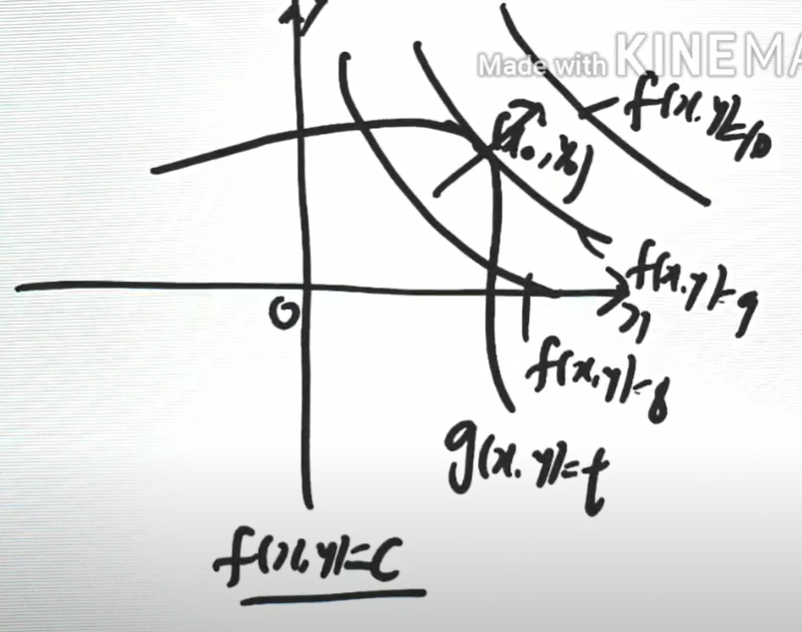 y
Made with KINEMA
f(x,y)=10
(x₀, y₀)
f(x,y)=9
x
0
f(x,y)=8
g(x,y)=t
f(x,y)=C